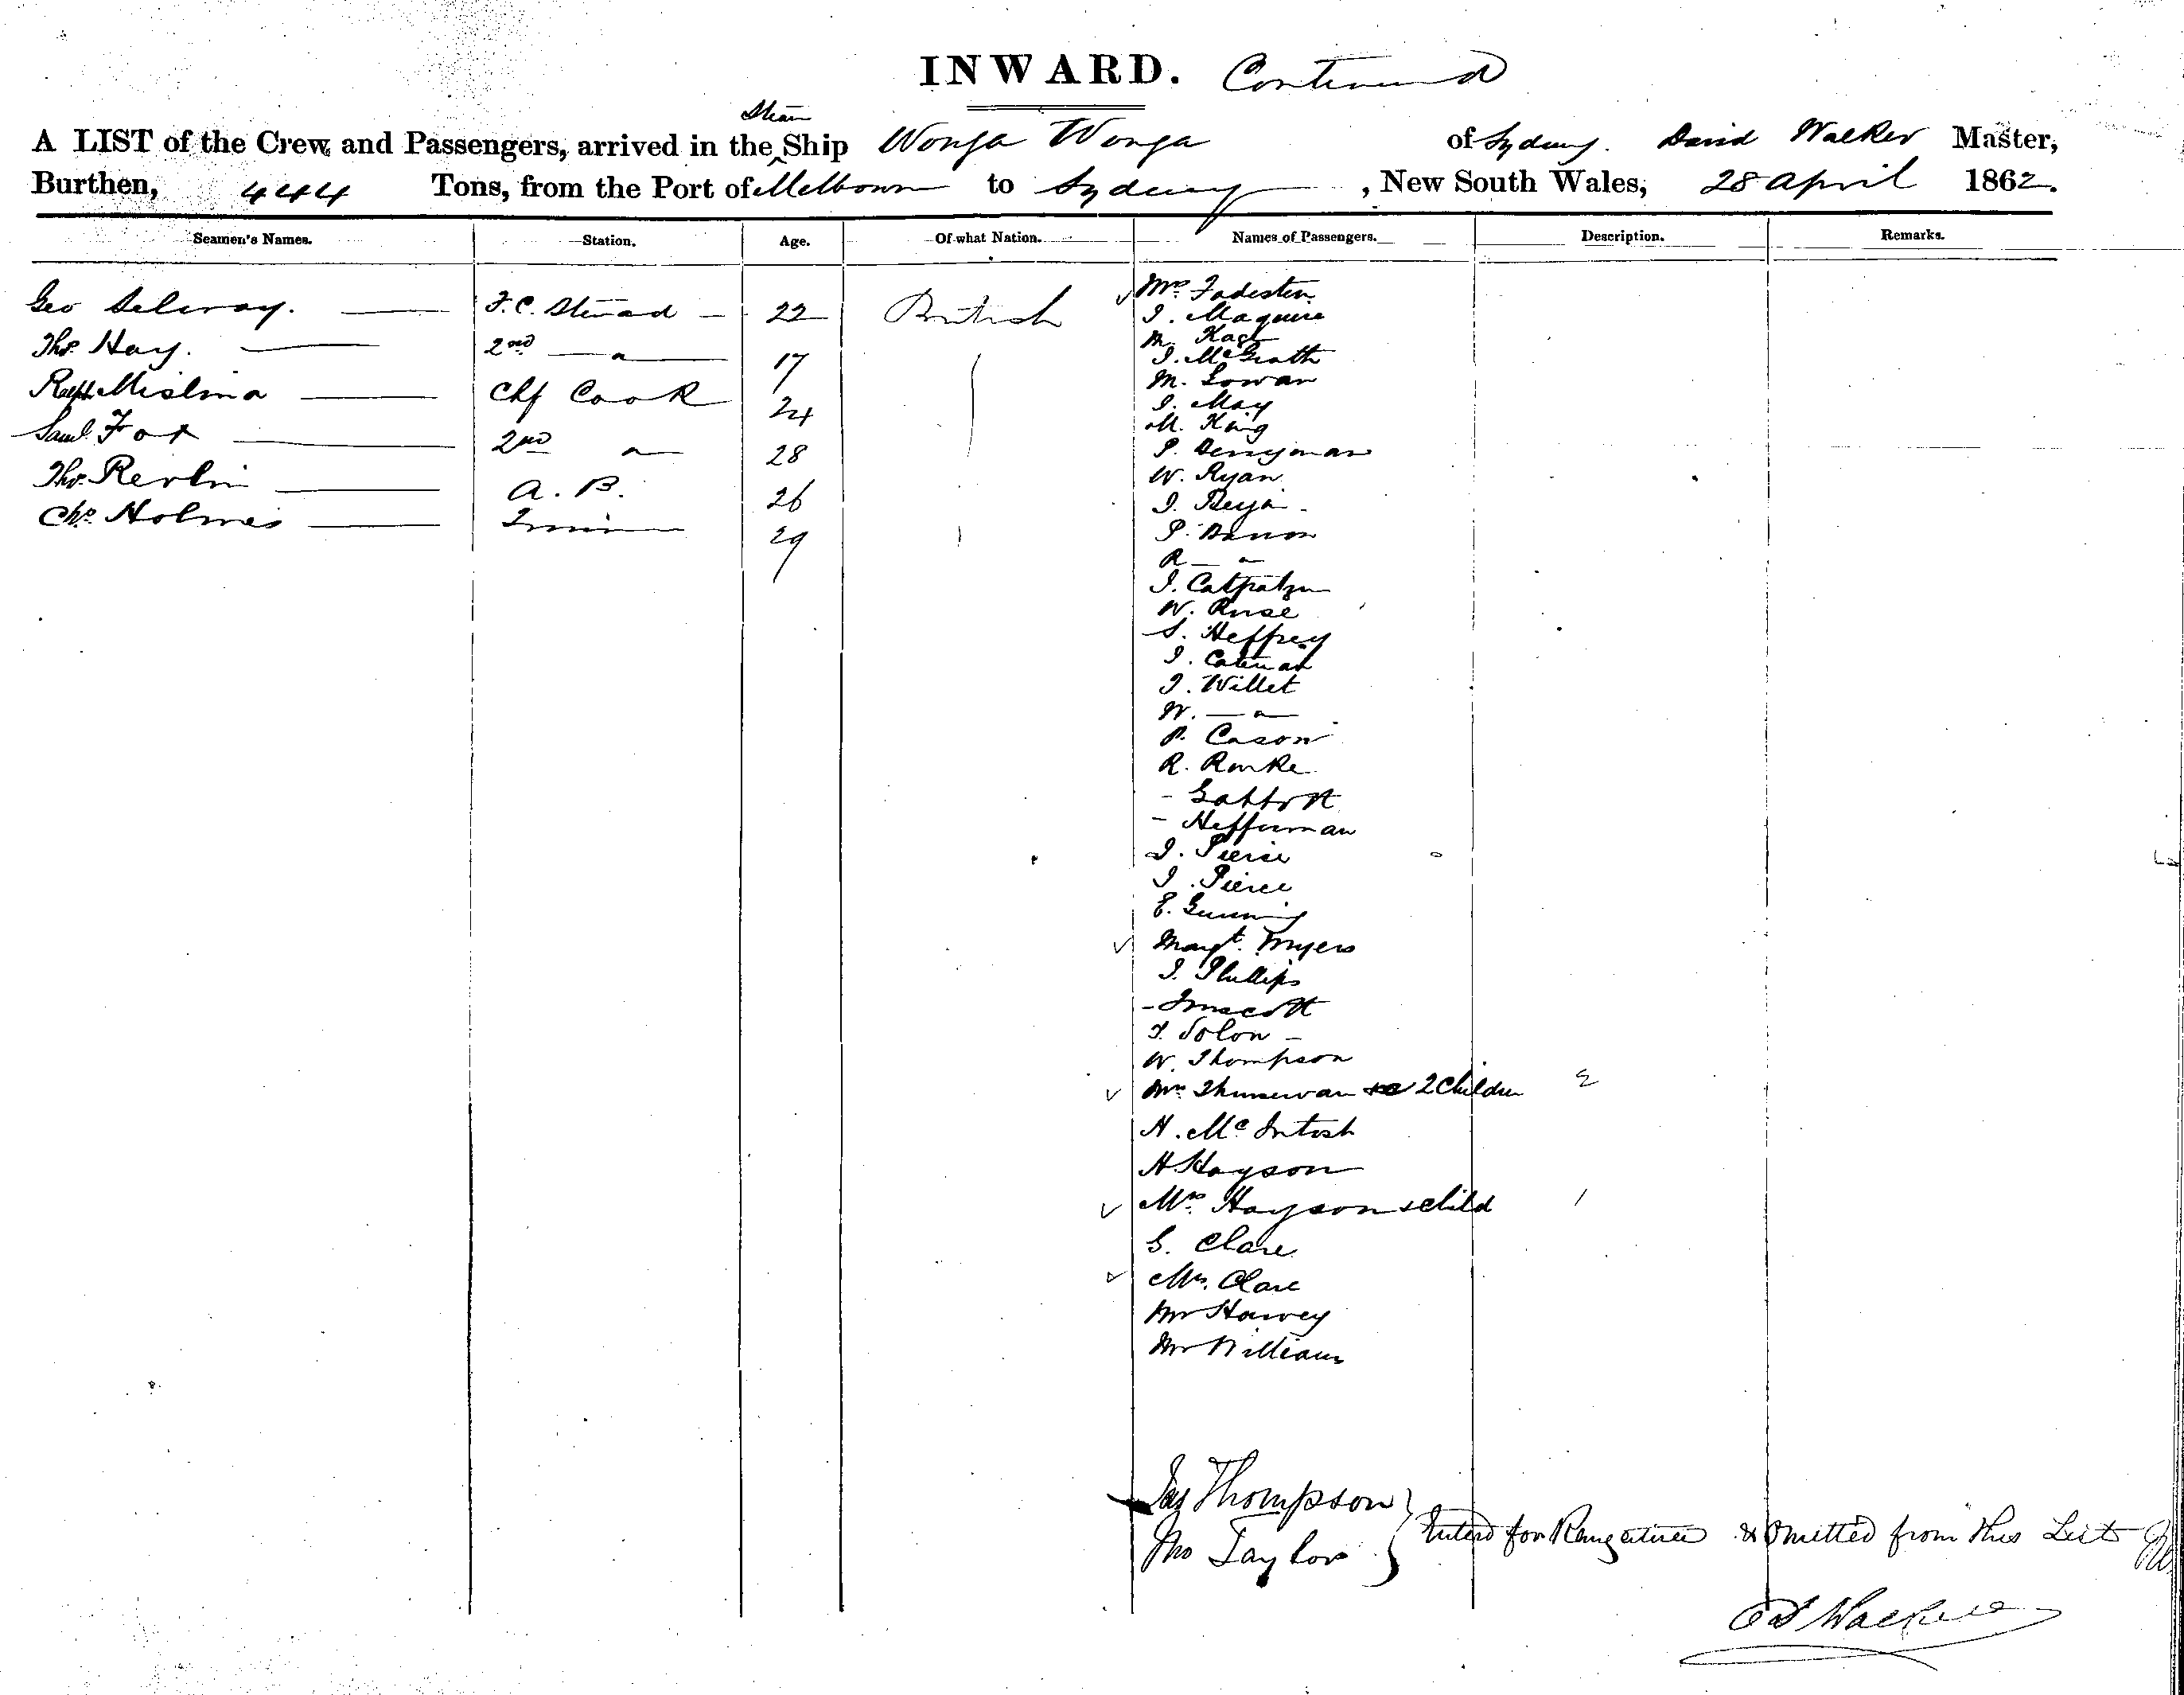 INWARD. Continued
A LIST of the Crew and Passengers, arrived in the Steam Ship Wonga Wonga of Sydney. David Walker Master,
Burthen, 444 Tons, from the Port of Melbourne to Sydney, New South Wales, 28 April 1862.
Seamen's Names. Station. Age. Of what Nation. Names of Passengers. Description. Remarks.
Geo Selway. F.C. Steward 22 British
Thos. Hay. 2nd 17
Ralph Cook 24
Saml. Fox 2nd 28
Thos. A.B. 26
Chs. Holmes 29
Mrs.
J. Maguire
M.
J. McGrath
M. Gowan
J. May
M. King
P. Berryman
W. Ryan
J.
P. Banon
R
J.
W. Ruse
S. Heffrey
J. Cateman
J. Willet
W.
P. Cason
R. Rourke
- Gabbott
- Heffernan
J. Pierce
J. Pierce
E. Gunning
Margt. Myers
J. Phillips
-
J. Solon -
W. Thompson
Mrs. 2 Children 2
H. McIntosh
H. Hayson
Mrs. Hayson & child 1
G. Clare
Mrs. Clare
Mr Harvey
Mr William
Jas Thompson
Jno Taylor
Enterd for & Omitted from this List
D Walker